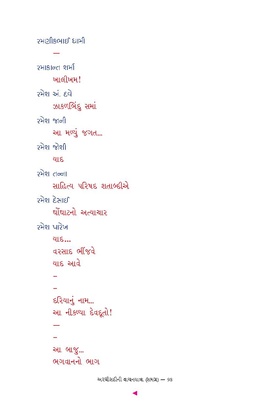 રમણીકભાઈ ધામી
—
રમાકાન્ત શર્મા
ખાલીખમ!
રમેશ અં. દવે
ઝાકળબિંદુ સમાં
રમેશ જાની
આ મળ્યું જગત...
રમેશ જોશી
યાદ
રમેશ તન્ના
સાહિત્ય પરિષદ શતાબ્દીએ
રમેશ દેસાઈ
ઘોંઘાટનો અત્યાચાર
રમેશ પારેખ
યાદ...
વરસાદ ભીંજવે
યાદ આવે
–
–
દરિયાનું નામ...
આ નીકળ્યા દેવદૂતો!
—
–
આ બાજુ...
ભગવાનનો ભાગ